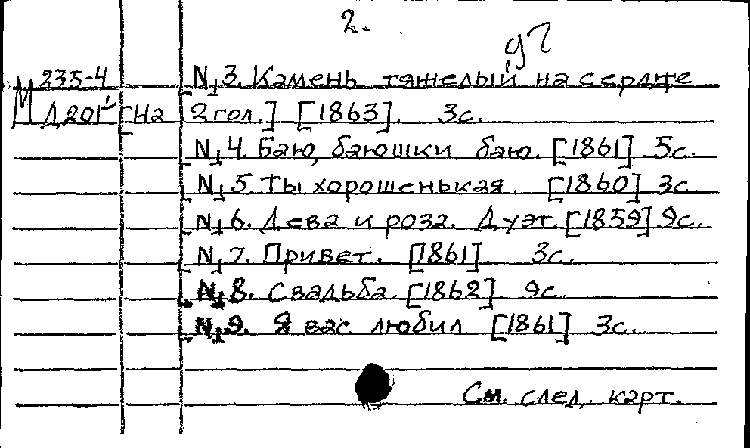 2.
97
235-4 N 3. Камень тяжелый на сердже
М Д201 [На 2 гол.] [1863]. 3с.
N 4. Баю, баюшки баю. [1861] 5с.
N 5. Ты хорошенькая. [1860] 3с
N 6. Дева и роза. Дуэт. [1859] 9с.
N 7. Привет. [1861] 3с.
N 8. Свадьба. [1862] 9с.
N 9. Я вас любил [1861] 3с.
См. след. карт.